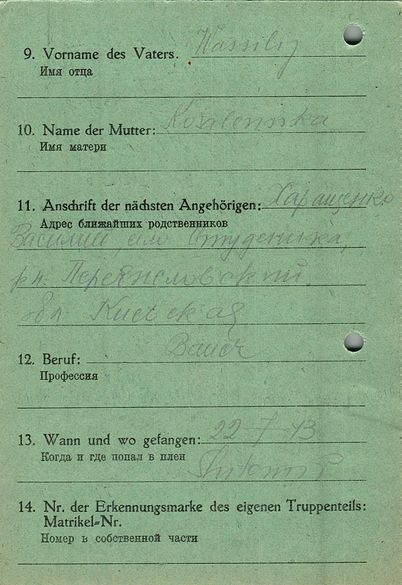 9. Vorname des Vaters. Wassilij
Имя отца
10. Name der Mutter:
Имя матери
11. Anschrift der nächsten Angehörigen: Харащенко
Адрес ближайших родственников
Василий село Студеника,
р-н. Переяславский
обл Киевская
12. Beruf: Bauer
Профессия
13. Wann und wo gefangen: 22-7-43
Когда и где попал в плен
14. Nr. der Erkennungsmarke des eigenen Truppenteils:
Matrikel-Nr.
Номер в собственной части